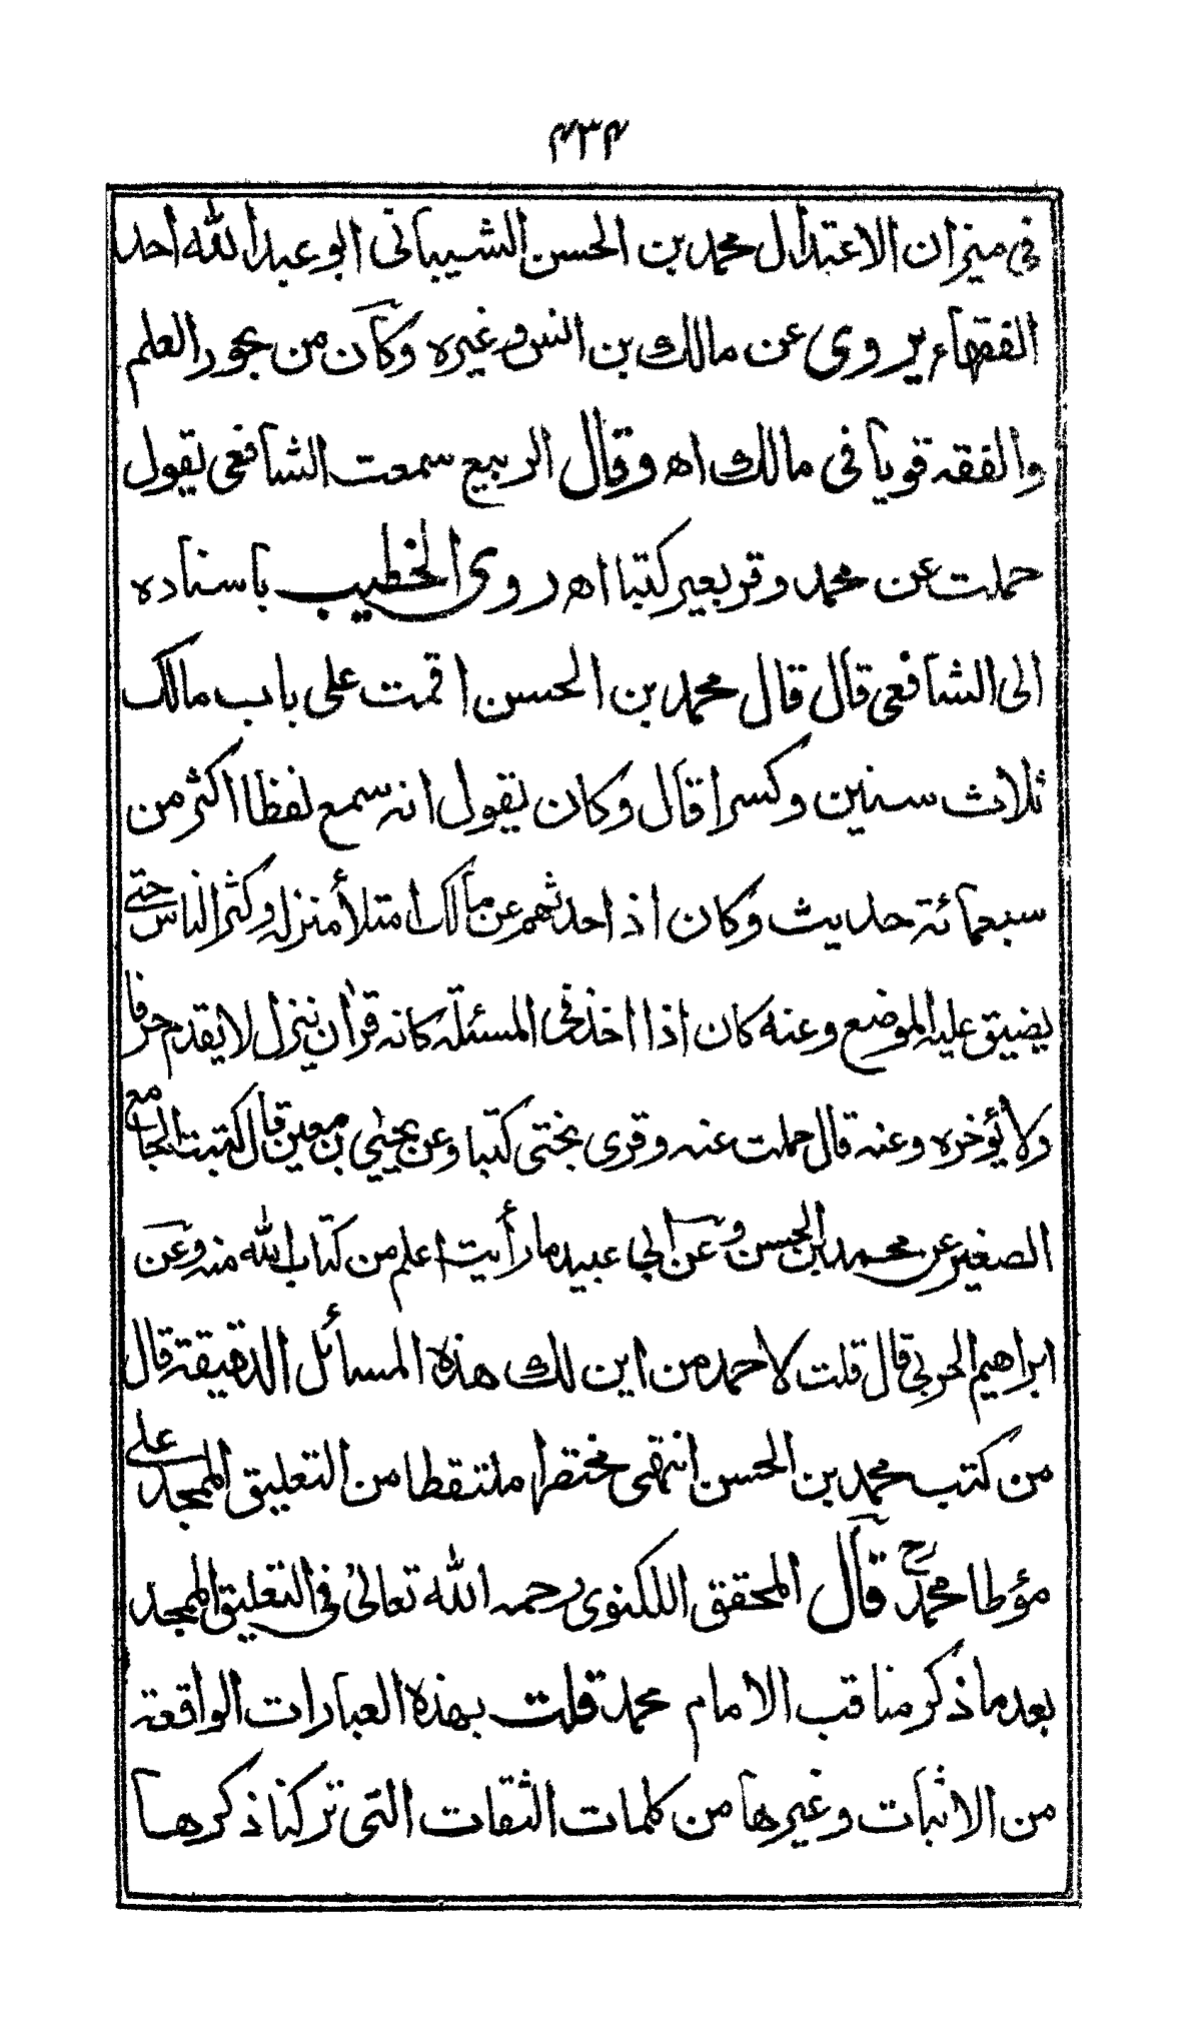 ۴۳۴
فى ميزان الاعتدال محمد بن الحسن الشيبانى ابو عبد الله احد
الفقهاء يروى عن مالك بن انس وغيره وكان من بحور العلم
والفقه قويا فى مالك اه وقال الربيع سمعت الشافعى يقول
حملت عن محمد وقر بعير كتبا اه روى الخطيب باسناده
الى الشافعى قال قال محمد بن الحسن اقمت على باب مالك
ثلاث سنين وكسرا قال وكان يقول انه سمع لفظا اكثر من
سبعمائة حديث وكان اذا حدثهم عن مالك امتلأ منزله وكثر الناس حتى
يضيق عليه الموضع وعنه كان اذا اخذ فى المسئلة كانه قرآن ينزل لا يقدم حرفا
ولا يؤخره وعنه قال حملت عنه وقرى بختى كتبا وعن يحيى بن معين قال كتبت الجامع
الصغير عن محمد بن الحسن وعن ابى عبيد ما رأيت اعلم من كتاب الله منه وعن
ابراهيم الحربى قال قلت لاحمد من اين لك هذه المسائل الدقيقة قال
من كتب محمد بن الحسن انتهى مختصرا ملتقطا من التعليق الممجد على
مؤطا محمدؒ قال المحقق اللكنوى رحمه الله تعالى فى التعليق الممجد
بعد ما ذكر مناقب الامام محمد قلت بهذه العبارات الواقعة
من الاثبات وغيرها من كلمات الثقات التى تركنا ذكرها